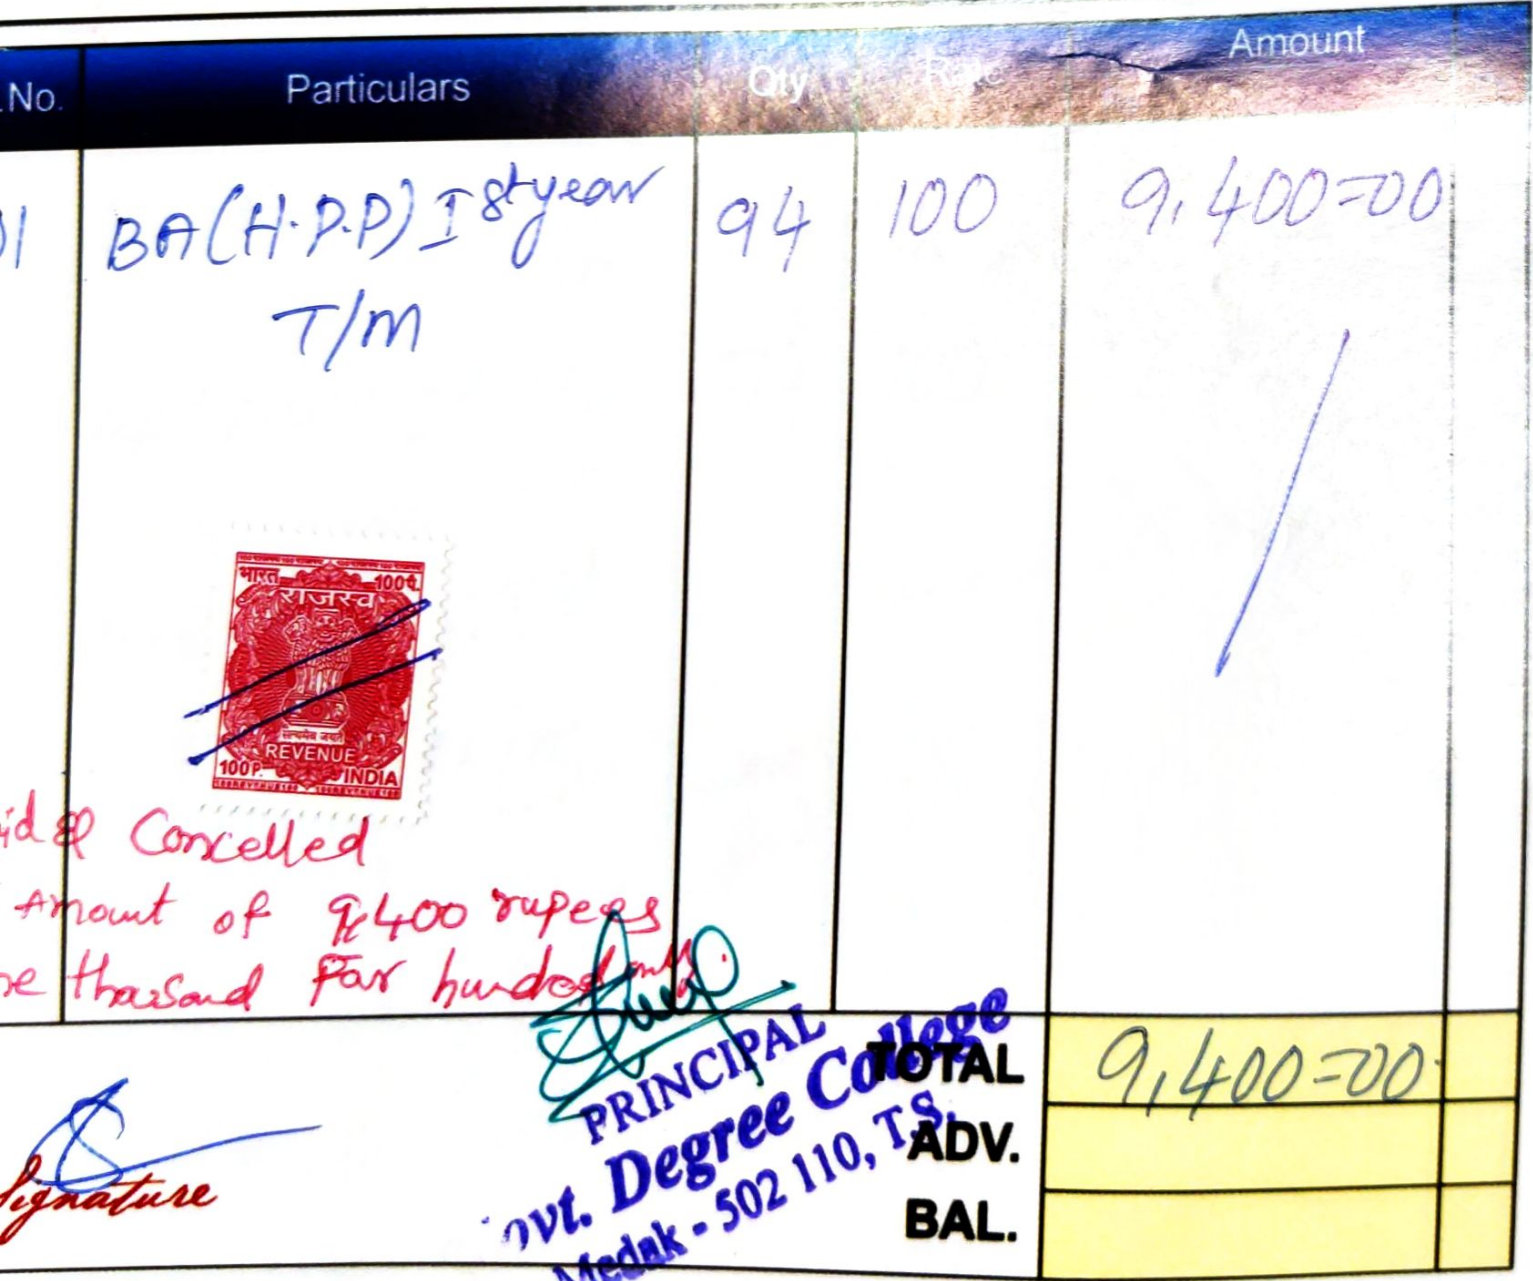 .No. Particulars Qty Rate Amount
01 BA(H.P.P) I st year 94 100 9,400=00
T/M
भारत 100पै.
राजस्व
सत्यमेव जयते
REVENUE
100P. INDIA
id & Concelled
Amount of 9,400 rupees
ne thousand Four hundred only.
PRINCIPAL
ovt. Degree College
Medak - 502 110, T.S.
TOTAL 9,400=00
ADV.
BAL.
Signature